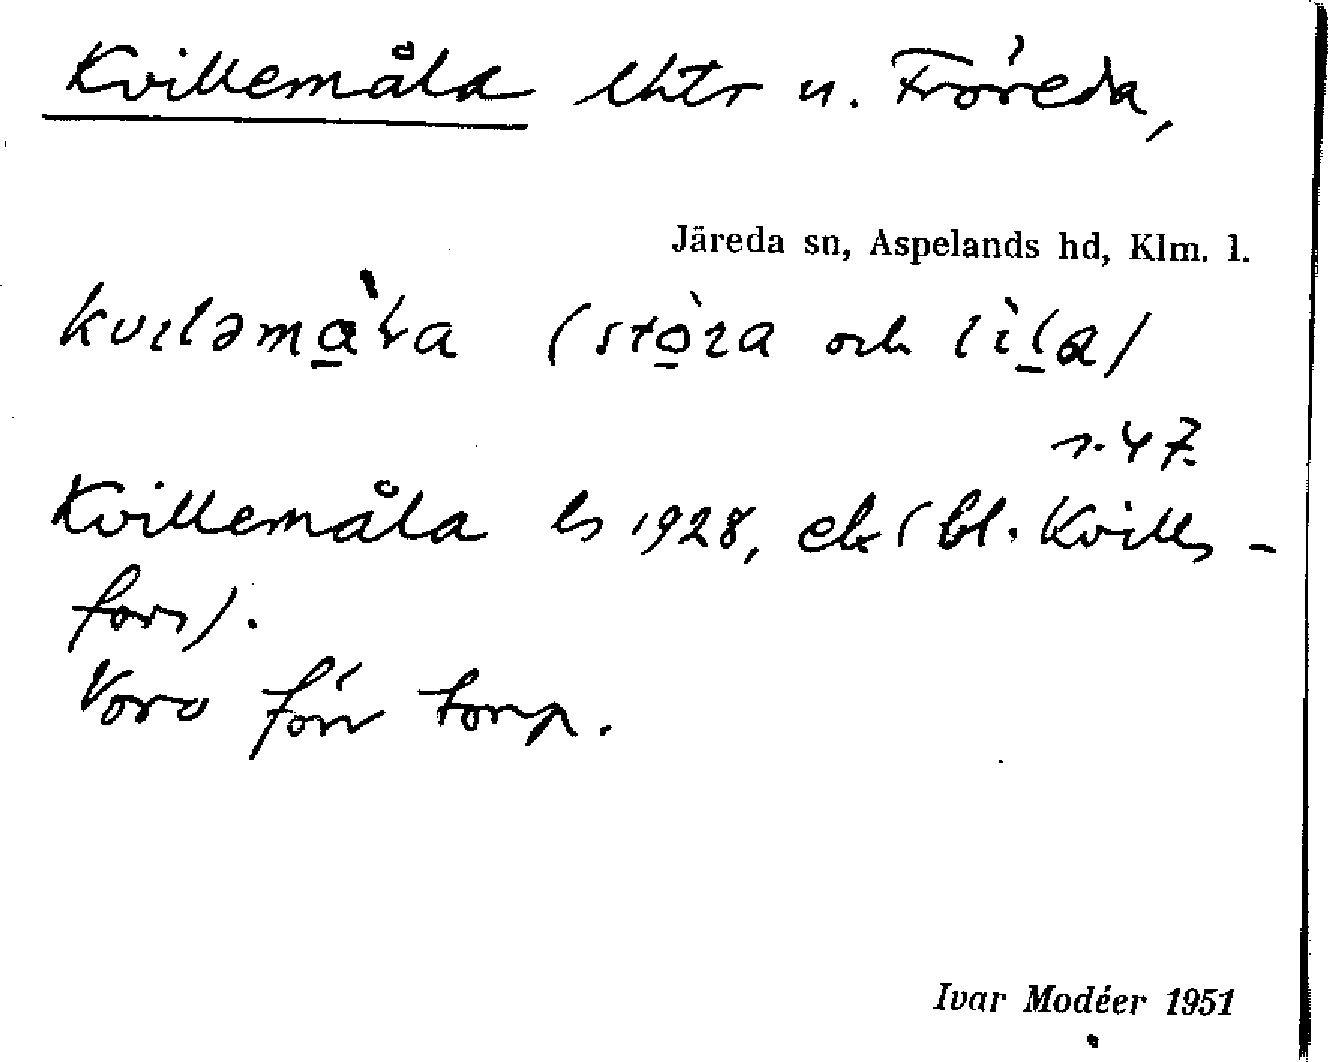 Kvillemåla lhtr u. Fröreda,
Järeda sn, Aspelands hd, Klm. l.
kvıləmàɫa (stòra och lìla)
s. 47.
Kvillemåla ls 1928, ek (bl. Kvills-
fors).
Voro förr torp.
Ivar Modéer 1951